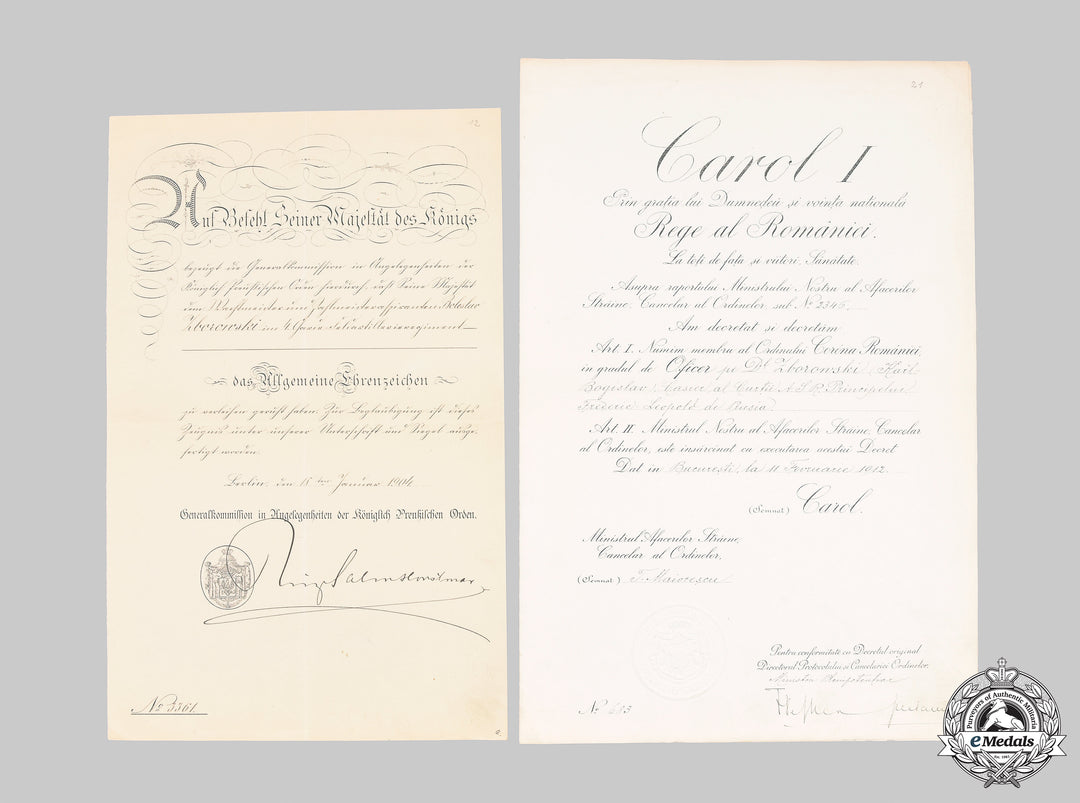 12
Auf Befehl Seiner Majestät des Königs
bezeugt die Generalkommission in Angelegenheiten der
Königlich Preußischen Orden hierdurch, daß Seine Majestät
dem Wachtmeister und Zahlmeisteraspiranten Boleslav
Zborowski im 4. Garde-Feldartillerieregiment
das Allgemeine Ehrenzeichen
zu verleihen geruht haben. Zur Beglaubigung ist dieses
Zeugnis unter unserer Unterschrift und Siegel ausge-
fertigt worden.
Berlin, den 18ten Januar 1904
Generalkommission in Angelegenheiten der Königlich Preußischen Orden.
No 3361.
21
Carol I
Prin grația lui Dumnedeŭ și voința națională
Rege al României.
La toți de față și viitori, Sănătate.
Asupra raportului Ministrului Nostru al Afacerilor
Străine, Cancelar al Ordinelor sub No 2345.
Am decretat și decretăm
Art. I. Numim membru al Ordinului Corona României,
in gradul de Oficer pe Dl Zborowski (Karl
Bogislav) Casier al Curții A. S. R. Principelui
Frederic Leopold de Prusia.
Art. II. Ministrul Nostru al Afacerilor Străine, Cancelar
al Ordinelor, este insărcinat cu executarea acestui Decret.
Dat in București, la 11 Fevruarie 1912.
(Semnat) Carol.
Ministrul Afacerilor Străine,
Cancelar al Ordinelor,
(Semnat) T. Maiorescu
Pentru conformitate cu Decretul original
Directorul Protocolului și Cancelariei Ordinelor,
Ministru Plenipotențiar
No 613
Purveyors of Authentic Militaria
eMedals